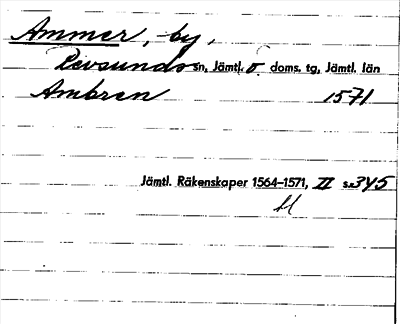 Ammer, by,
Revsunds sn, Jämtl. ö doms. tg, Jämtl. län
Ambren 1571
Jämtl. Räkenskaper 1564–1571, II s. 345